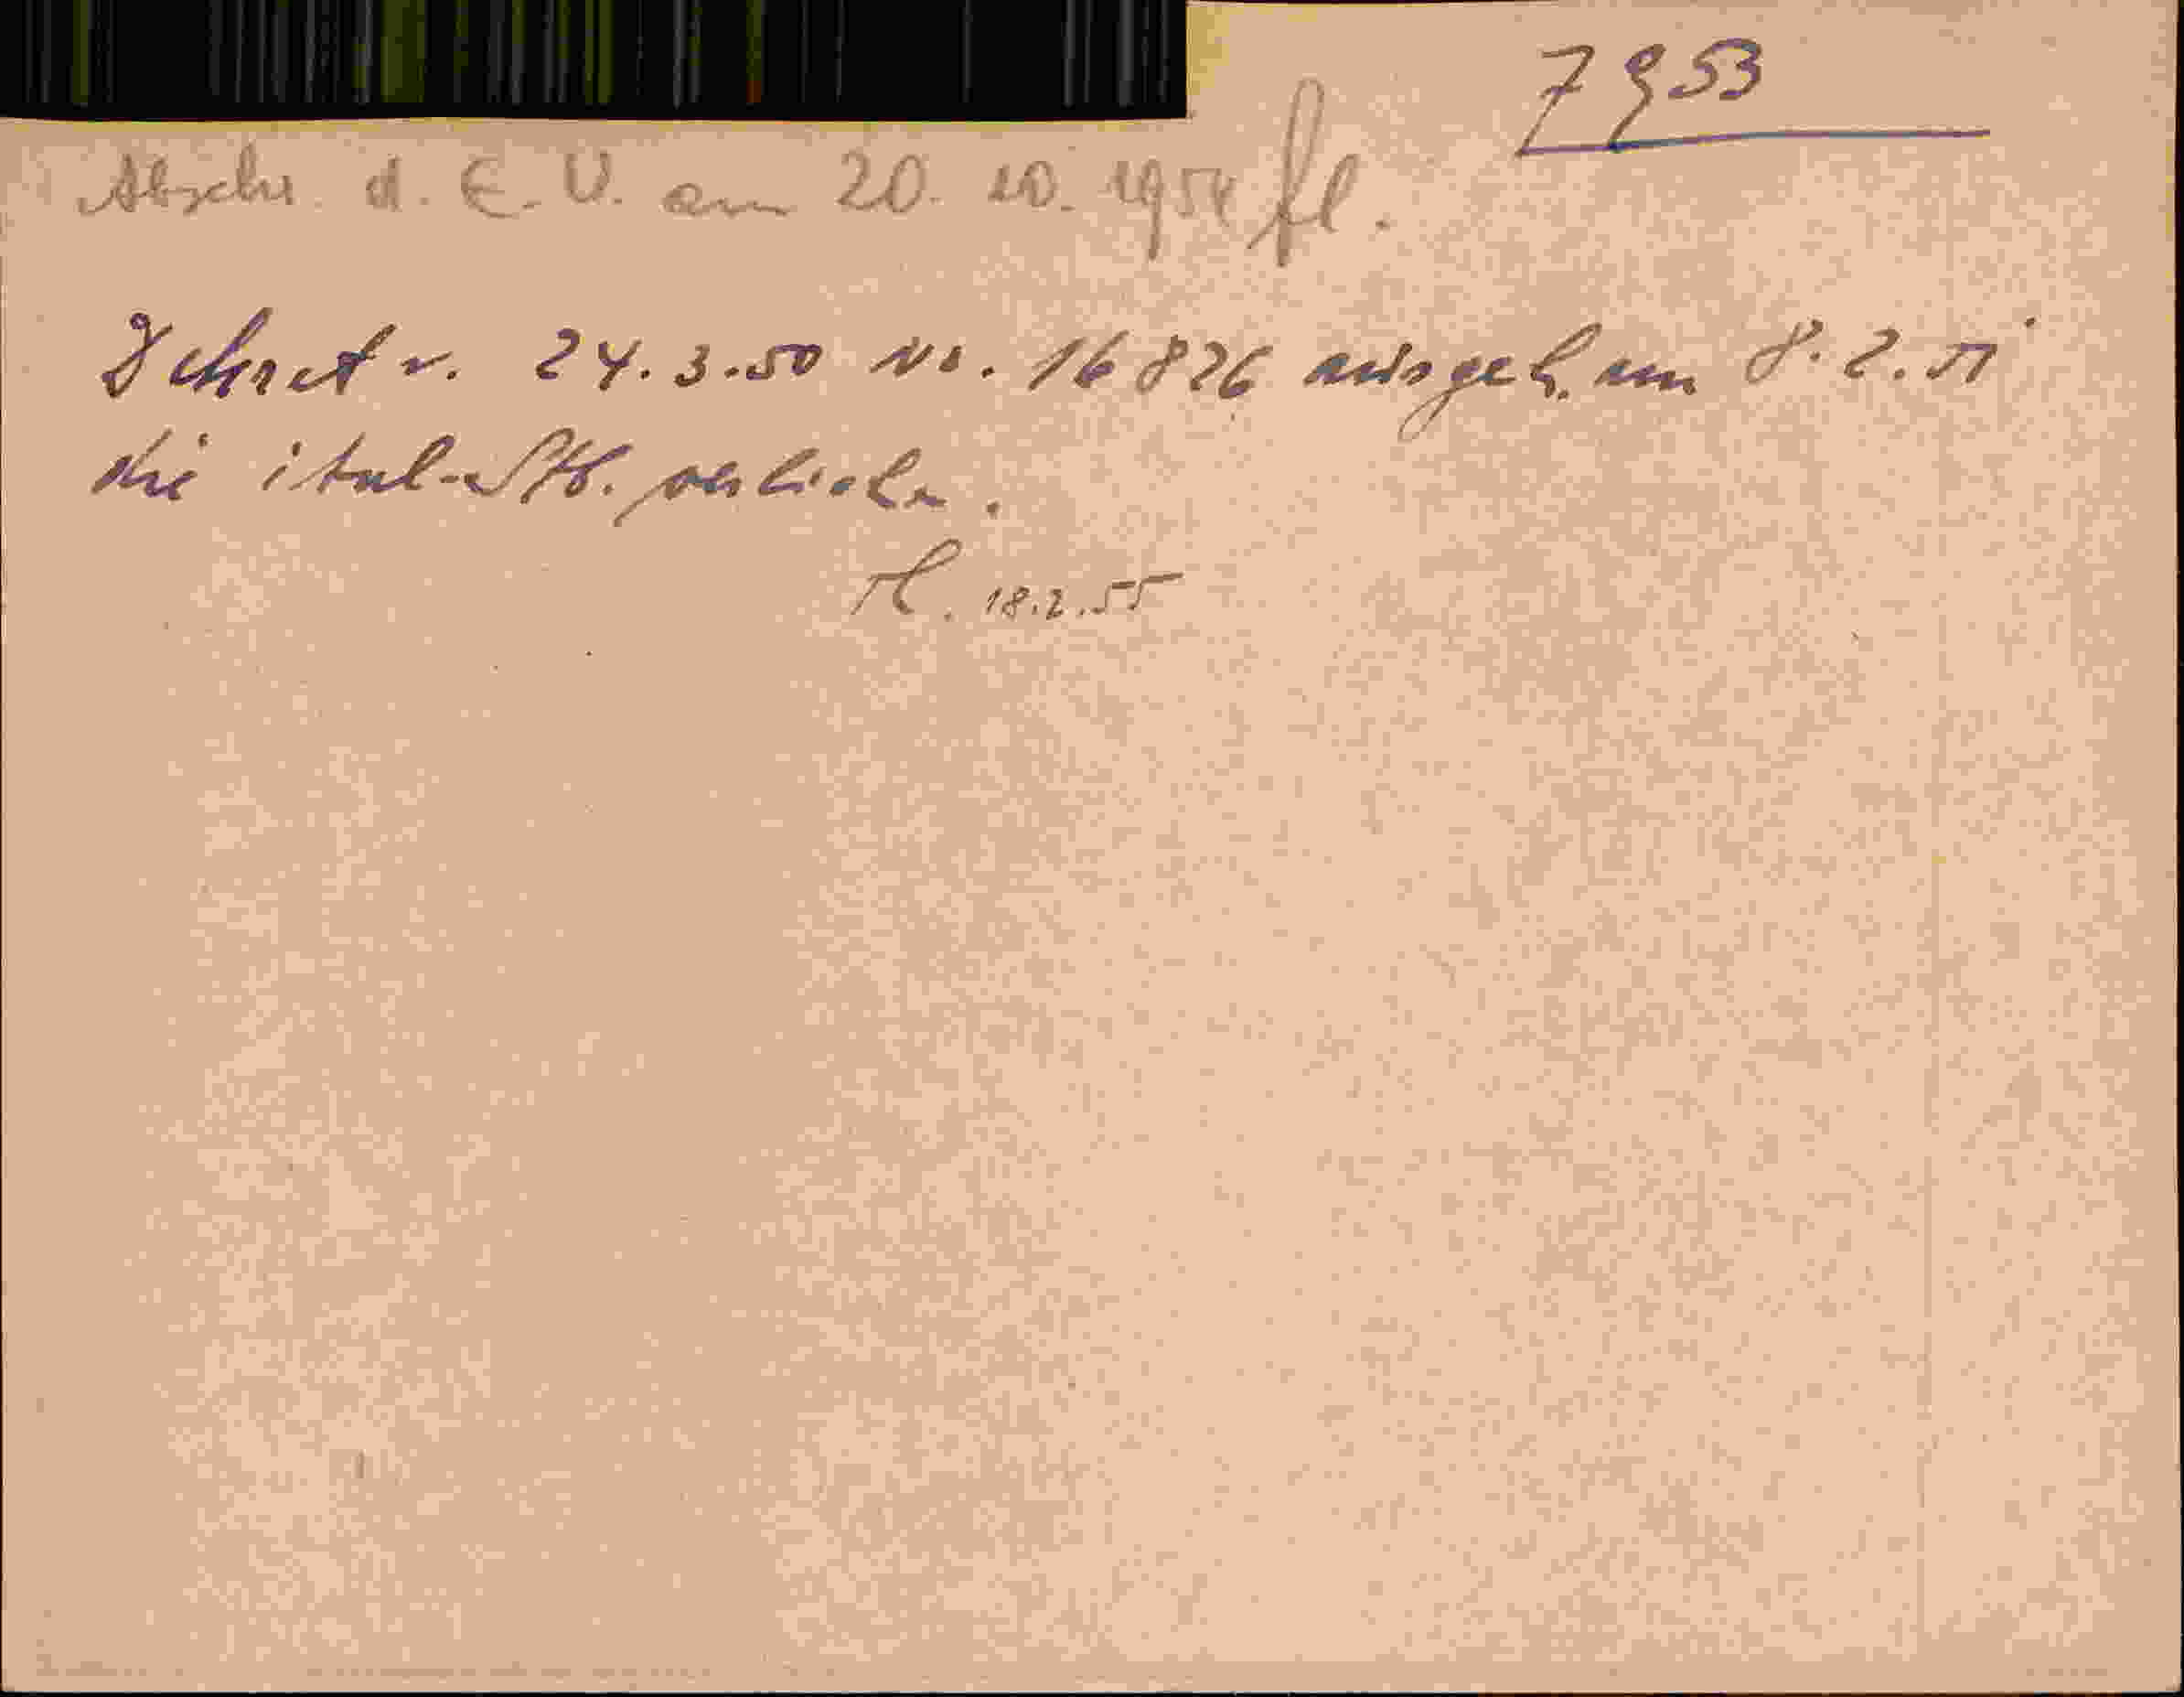 7953
Abschr. d. E. V. am 20. 10. 1954 fl.
Dekret v. 24.3.50 Nr. 16826 ausgeh. am 8.2.51
die ital. Stb. verliehen.
H. 18.2.55